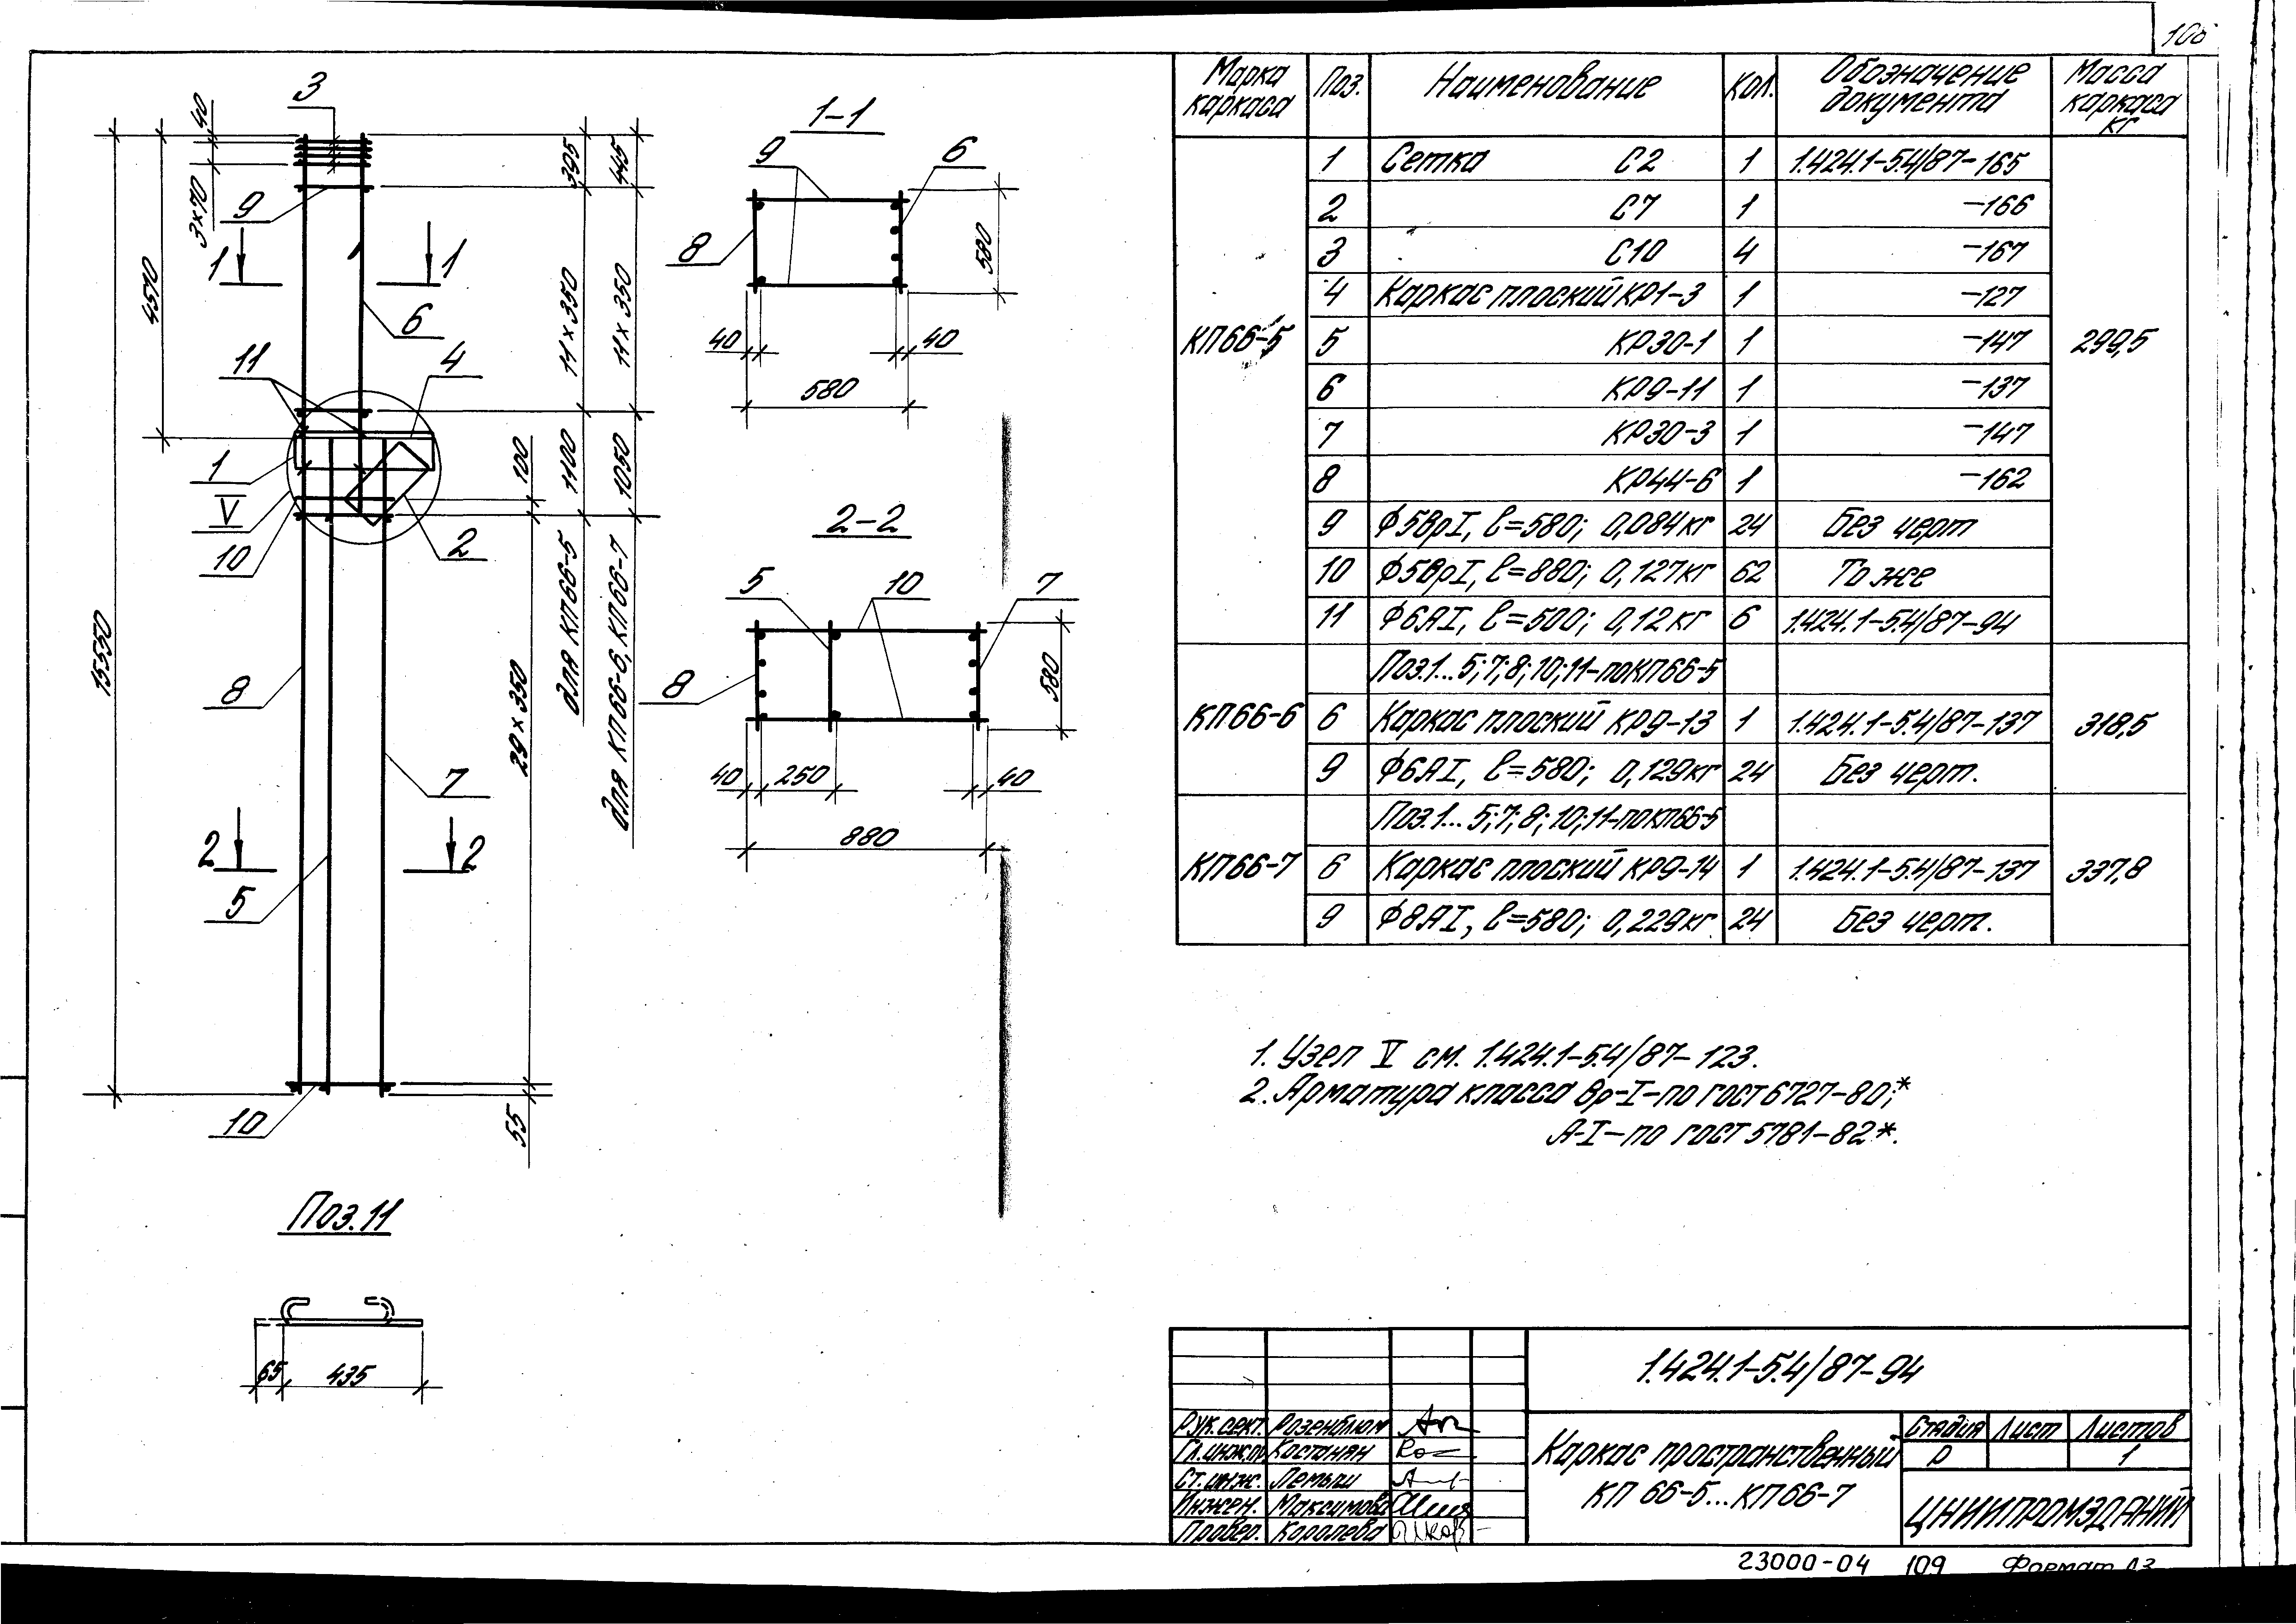 106
3
40
3×70
4570
15550
9
1
1
6
11
4
1
V
10
2
8
7
2
2
5
10
395
445
11×350
11×350
1100
1050
100
29×350
55
для КП66-5
для КП66-6, КП66-7
1-1
9
6
8
580
40
40
580
2-2
5
10
7
8
580
40
250
40
880
Поз.11
65
435
Марка каркаса
Поз.
Наименование
Кол.
Обозначение документа
Масса каркаса кг
КП66-5
299,5
1 Сетка С2 1 1.424.1-5.4/87-165
2 С7 1 -166
3 С10 4 -167
4 Каркас плоский КР1-3 1 -127
5 КР30-1 1 -147
6 КР9-11 1 -137
7 КР30-3 1 -147
8 КР44-6 1 -162
9 ϕ5ВрI, ℓ=580; 0,084кг 24 Без черт
10 ϕ5ВрI, ℓ=880; 0,127кг 62 То же
11 ϕ6АI, ℓ=500; 0,12кг 6 1.424.1-5.4/87-94
Поз.1...5;7;8;10;11-по КП66-5
КП66-6 6 Каркас плоский КР9-13 1 1.424.1-5.4/87-137 318,5
9 ϕ6АI, ℓ=580; 0,129кг 24 Без черт.
Поз.1...5;7;8;10;11-по КП66-5
КП66-7 6 Каркас плоский КР9-14 1 1.424.1-5.4/87-137 337,8
9 ϕ8АI, ℓ=580; 0,229кг 24 Без черт.
1. Узел V см. 1.424.1-5.4/87-123.
2. Арматура класса Вр-I-по ГОСТ 6727-80;*
А-I-по ГОСТ 5781-82*.
1.424.1-5.4/87-94
Рук.сект. Розенблюм
Гл.инж.пр. Костанян
Ст.инж. Лемыш
Инжен. Максимова
Провер. Королева
Каркас пространственный
КП 66-5...КП66-7
Стадия Лист Листов
Р 1
ЦНИИПРОМЗДАНИЙ
23000-04 109 Формат А3